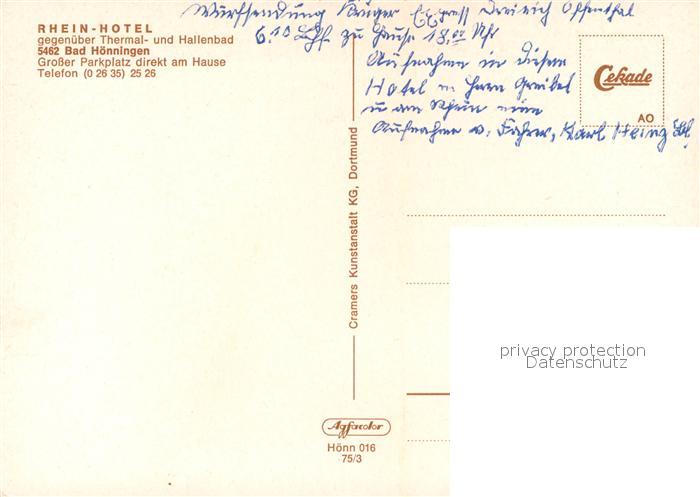 Wurfsendung Krüger Express Dreieich Offenthal
6.10 zu Hause 18.00 Uhr
Aufnahme in diesem
Hotel
u am Rhein eine
Aufnahme v. Fahrer, Karl Heinz
RHEIN-HOTEL
gegenüber Thermal- und Hallenbad
5462 Bad Hönningen
Großer Parkplatz direkt am Hause
Telefon (0 26 35) 25 26
Cekade
AO
Cramers Kunstanstalt KG, Dortmund
privacy protection
Datenschutz
Agfacolor
Hönn 016
75/3